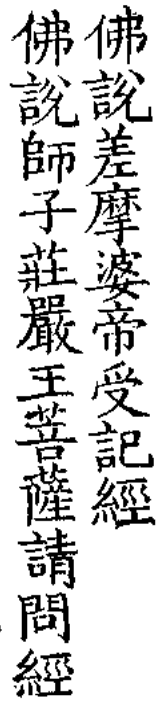 佛說差摩婆帝受記經
佛說師子莊嚴王菩薩請問經